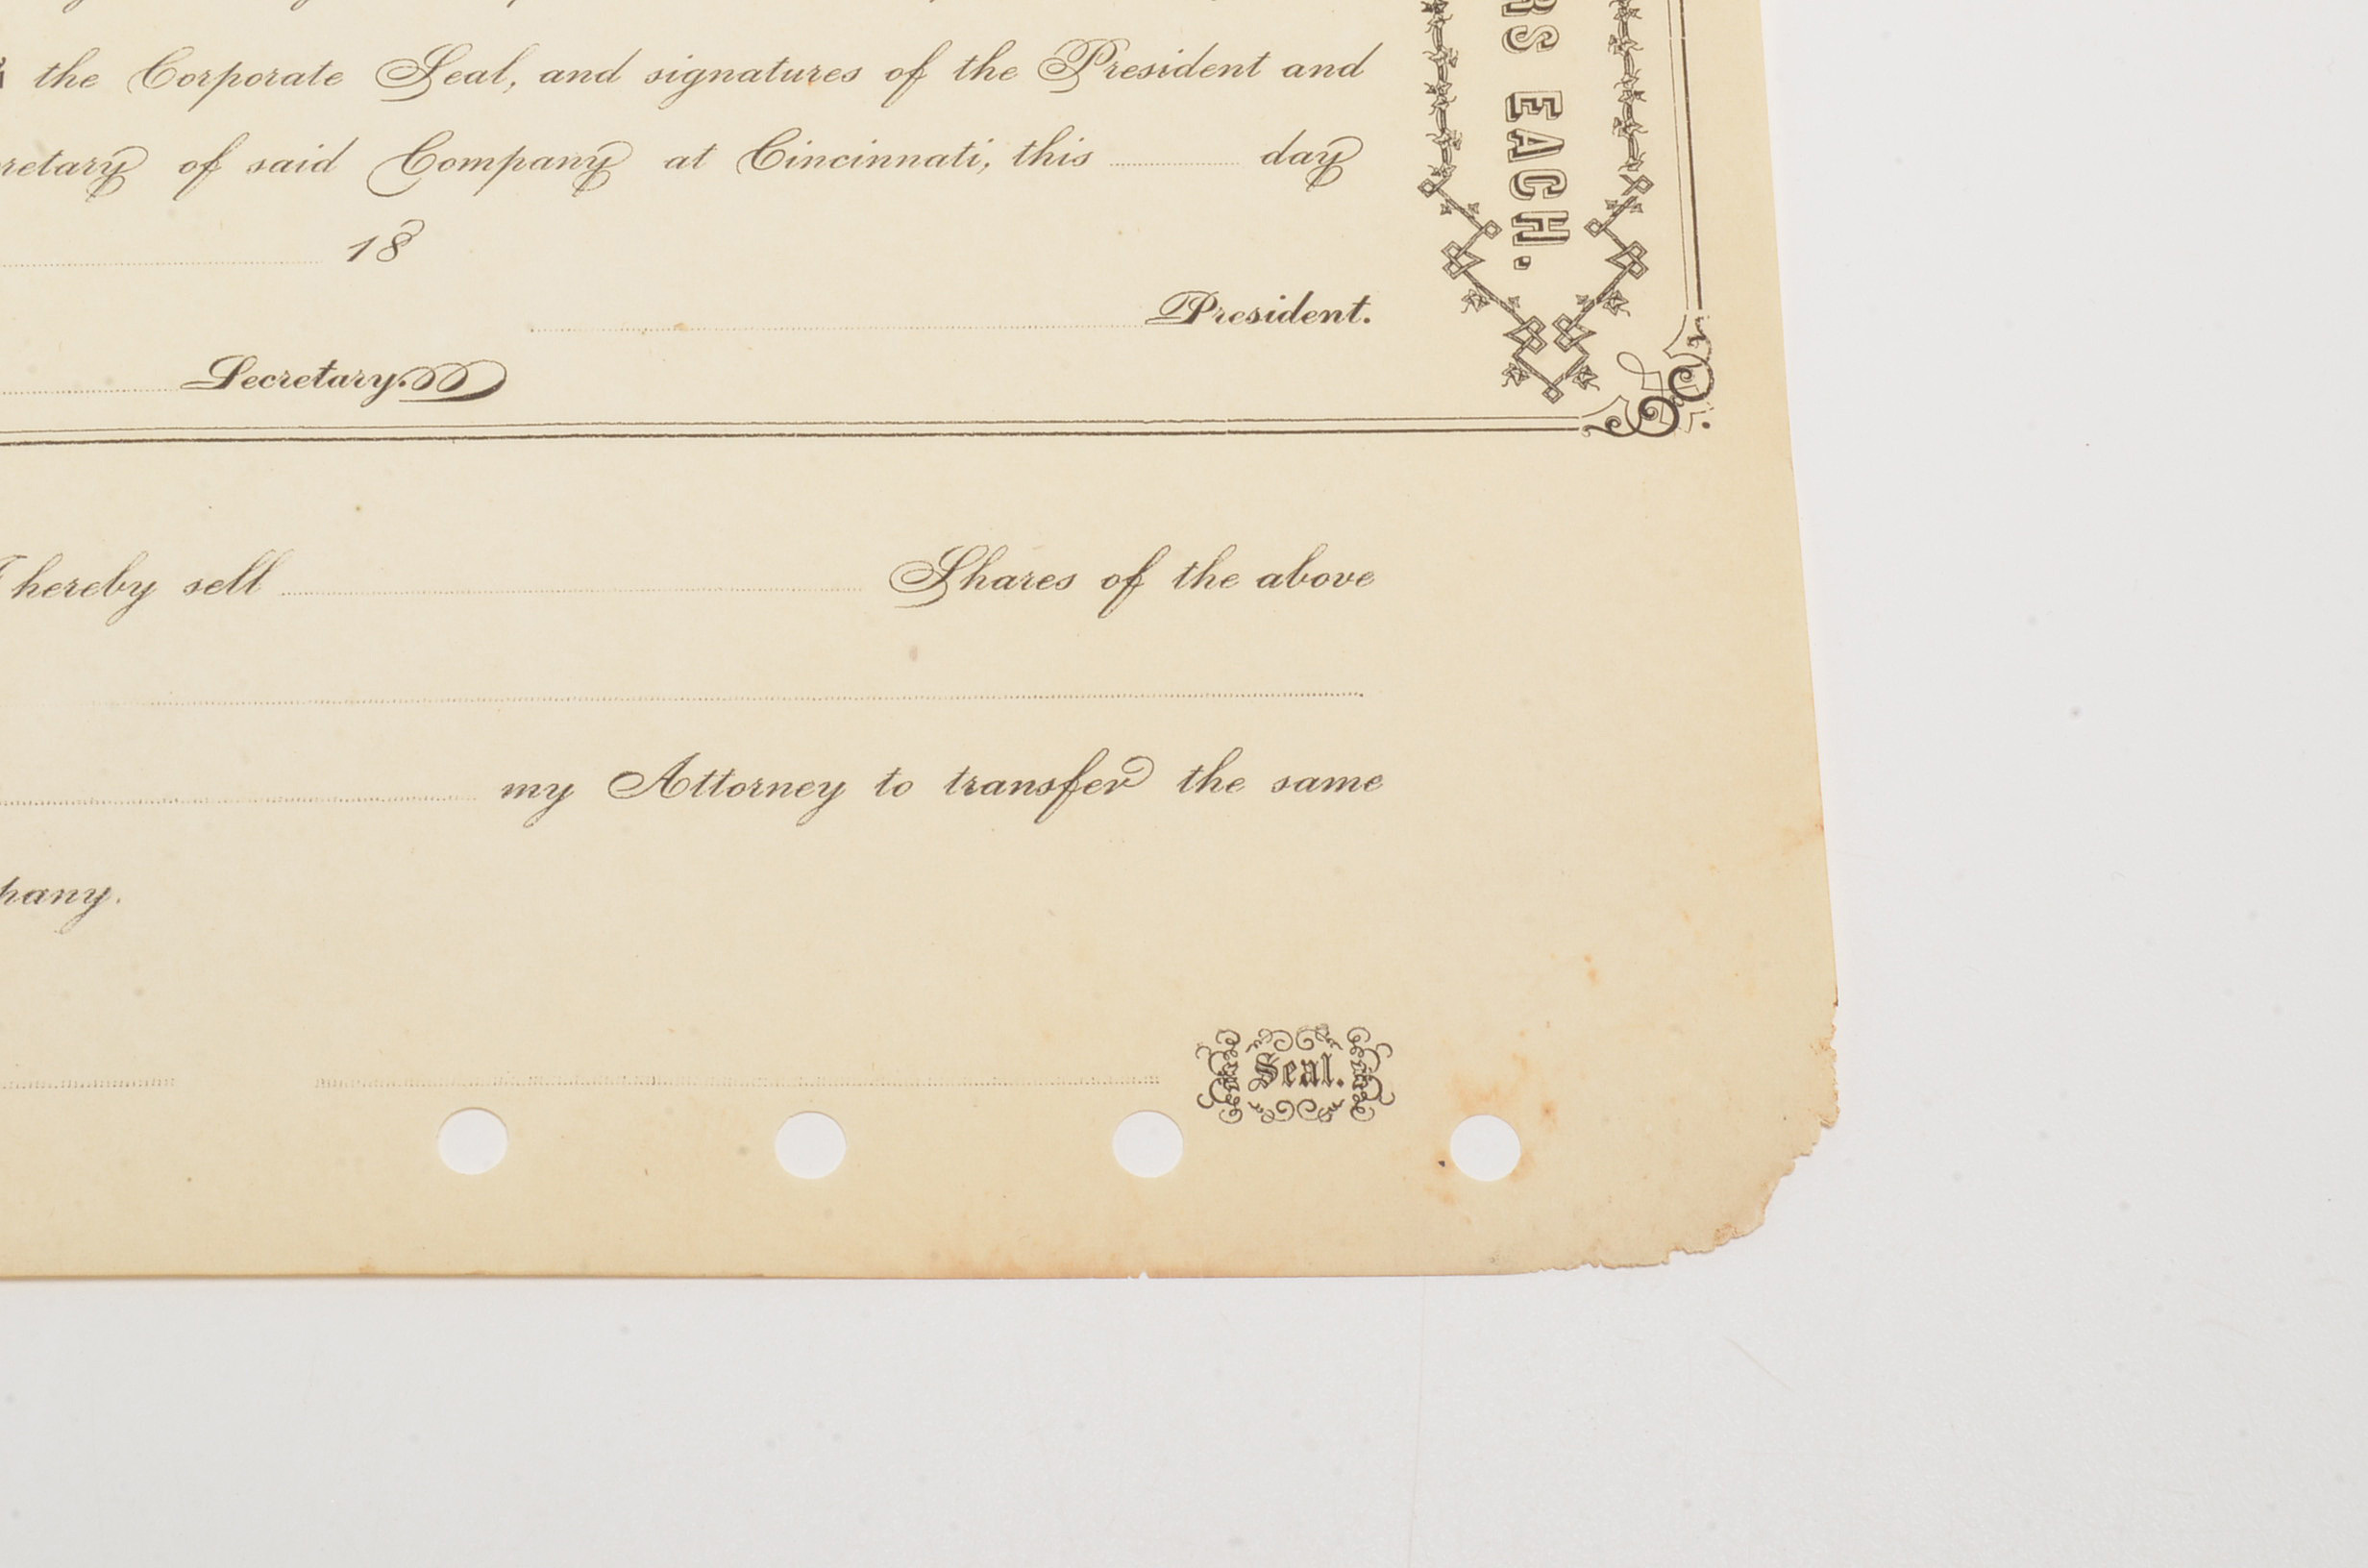 the Corporate Seal, and signatures of the President and
of said Company at Cincinnati, this day
18
President.
Secretary.
EACH.
hereby sell Shares of the above
my Attorney to transfer the same
Seal.